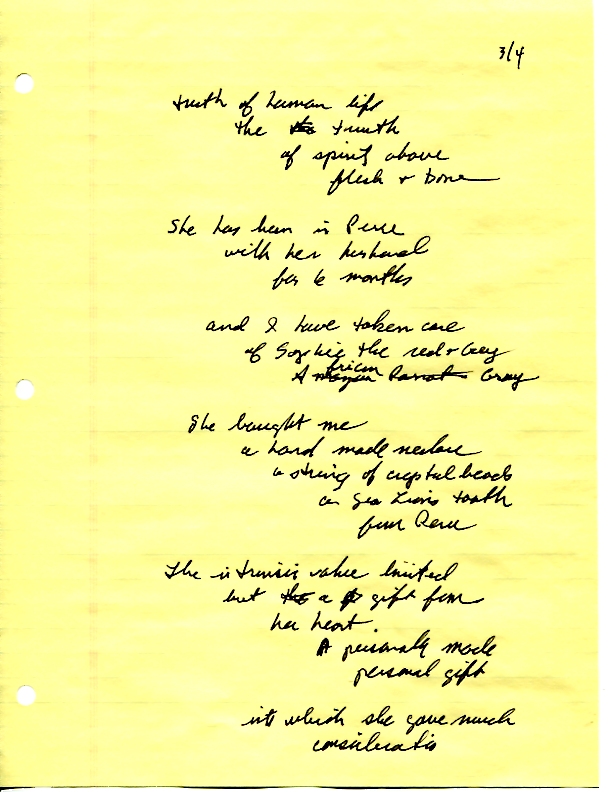 3/4
truth of human life
the truth
of spirit above
flesh + bone
She has been in Peru
with her husband
for 6 months
and I have taken care
of Sophie the red + Grey
African Gray
She bought me
a hand made neclace
a string of crystal beads
a Sea Lions tooth
from Peru
The intrinsic value limited
but a gift from
her heart.
A personally made
personal gift
into which she gave much
consideration